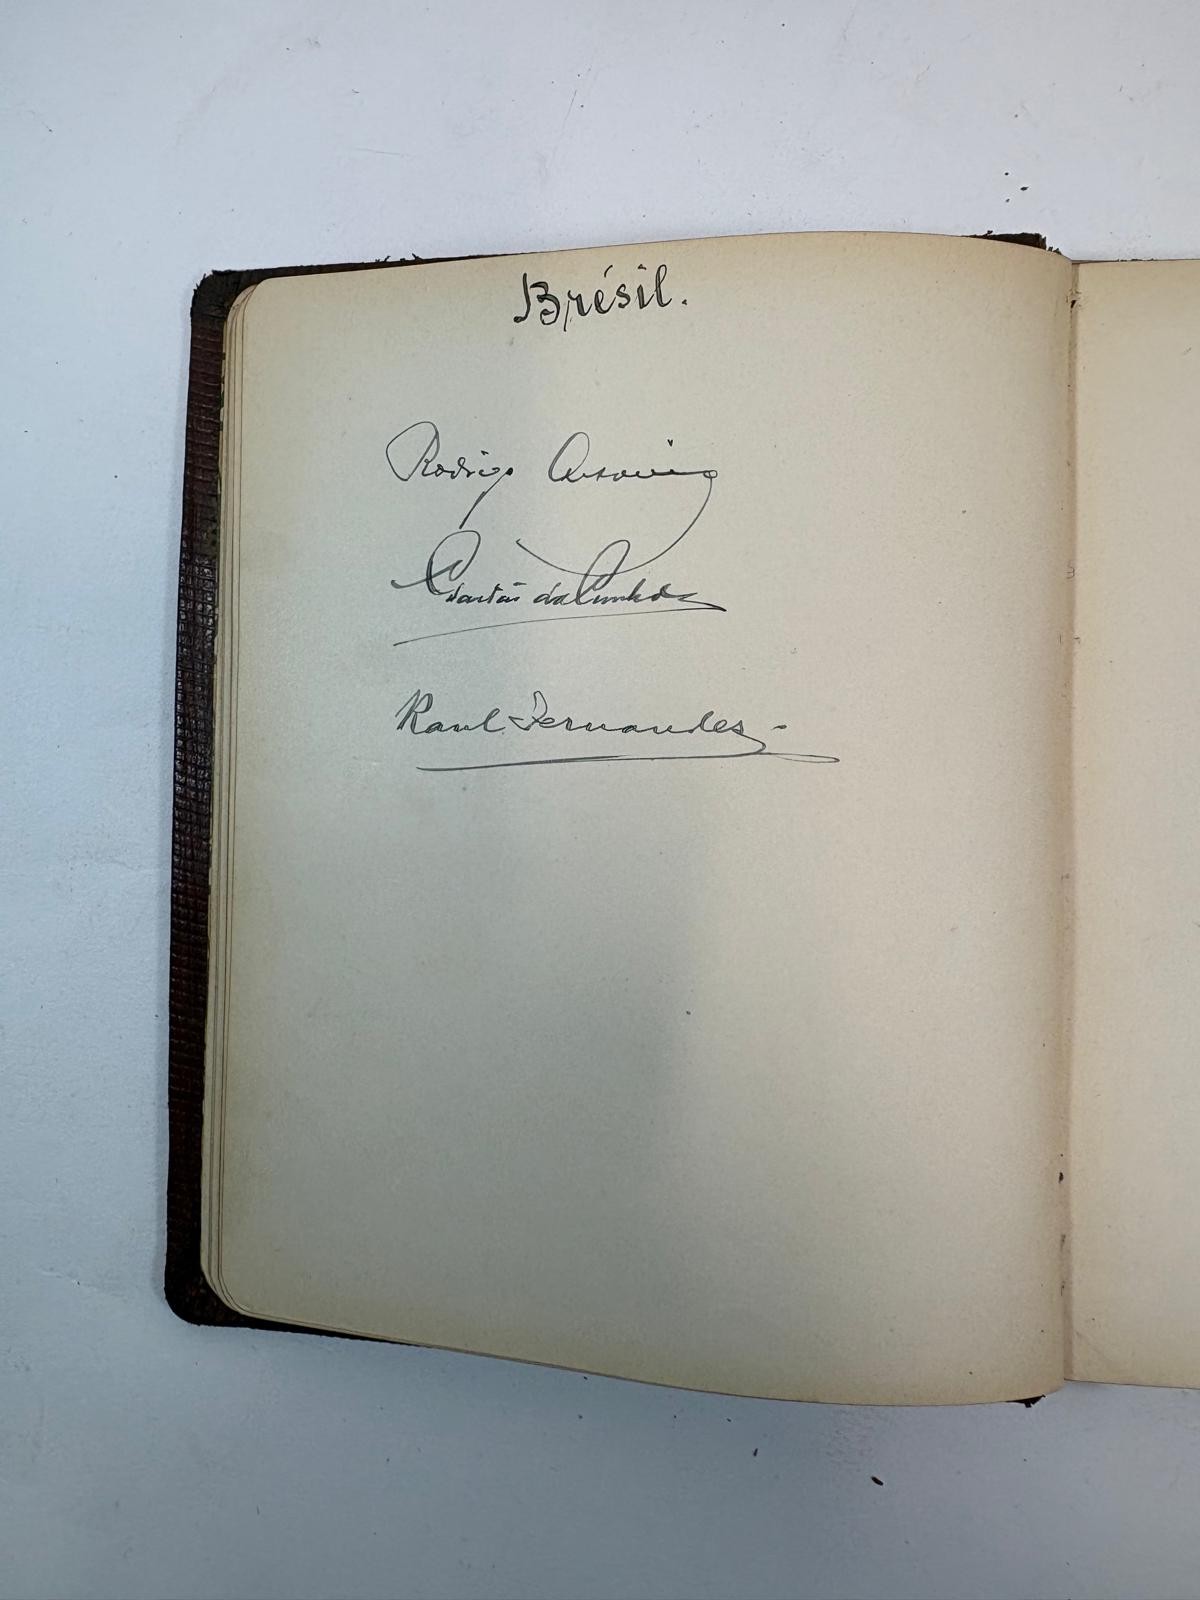 Brésil.
Rodrigo Octavio
Gastão da Cunha
Raul Fernandes -